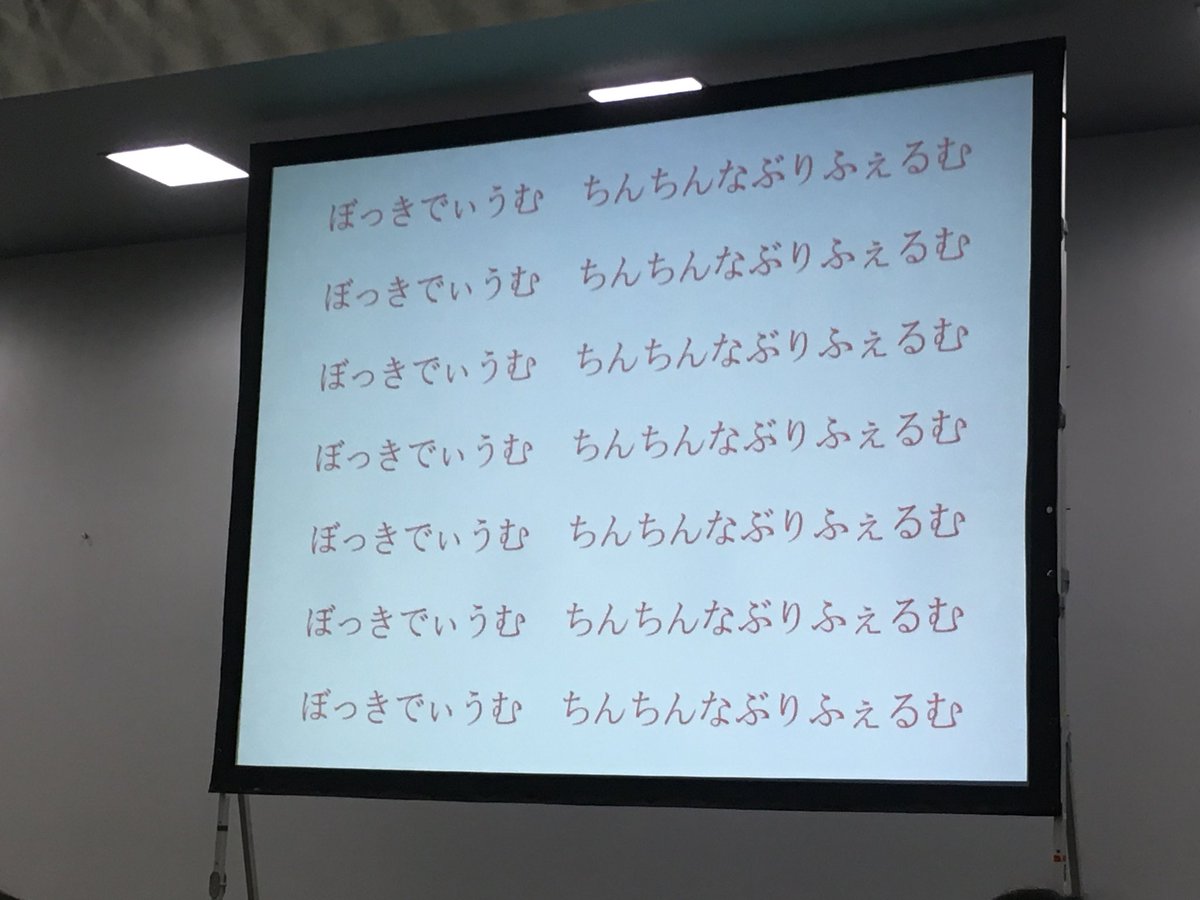 ぼっきでぃうむ　ちんちんなぶりふぇるむ
ぼっきでぃうむ　ちんちんなぶりふぇるむ
ぼっきでぃうむ　ちんちんなぶりふぇるむ
ぼっきでぃうむ　ちんちんなぶりふぇるむ
ぼっきでぃうむ　ちんちんなぶりふぇるむ
ぼっきでぃうむ　ちんちんなぶりふぇるむ
ぼっきでぃうむ　ちんちんなぶりふぇるむ